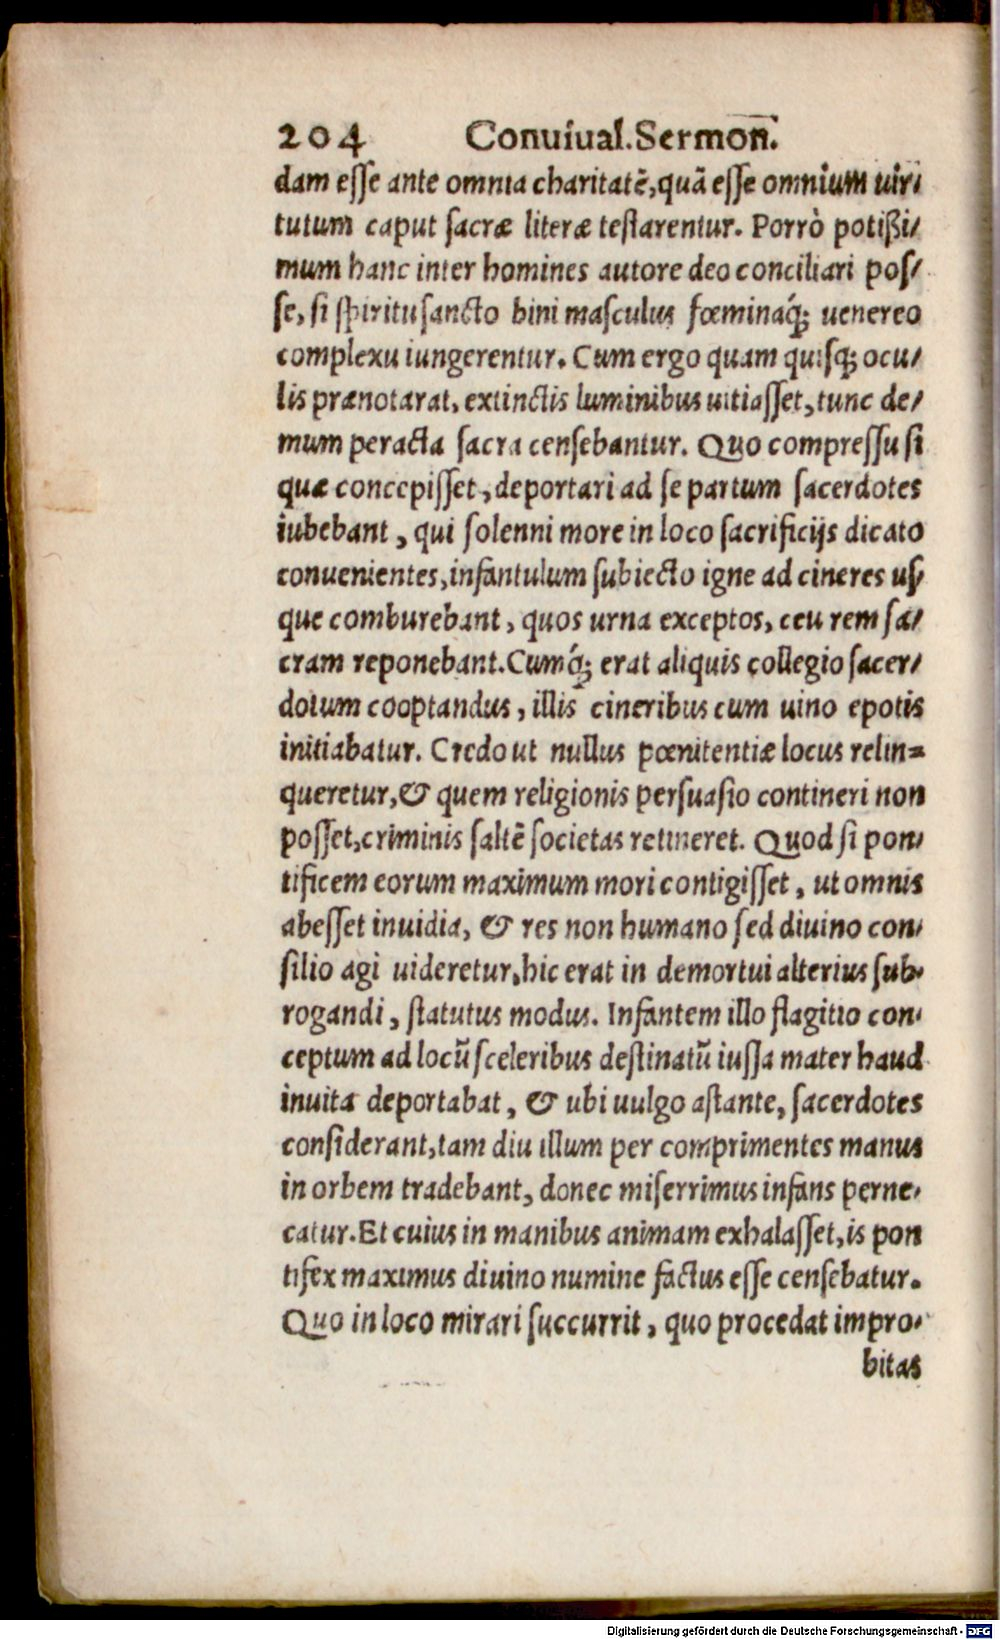 204 Conuiual. Sermon̄.
dam esse ante omnia charitatē, quā esse omnium uir-
tutum caput sacræ literæ testarentur. Porrò potißi-
mum hanc inter homines autore deo conciliari pos-
se, si spiritu sancto bini masculus fœminaq́; uenereo
complexu iungerentur. Cum ergo quam quisq; ocu-
lis prænotarat, extinctis luminibus uitiasset, tunc de-
mum peracta sacra censebantur. Quo compressu si
quæ concepisset, deportari ad se partum sacerdotes
iubebant, qui solenni more in loco sacrificijs dicato
conuenientes, infantulum subiecto igne ad cineres us-
que comburebant, quos urna exceptos, ceu rem sa-
cram reponebant. Cumq́; erat aliquis collegio sacer-
dotum cooptandus, illis cineribus cum uino epotis
initiabatur. Credo ut nullus pœnitentiæ locus relin-
queretur, & quem religionis persuasio contineri non
posset, criminis saltē societas retineret. Quod si pon-
tificem eorum maximum mori contigisset, ut omnis
abesset inuidia, & res non humano sed diuino con-
silio agi uideretur, hic erat in demortui alterius sub-
rogandi, statutus modus. Infantem illo flagitio con-
ceptum ad locū sceleribus destinatū iussa mater haud
inuita deportabat, & ubi uulgo astante, sacerdotes
considerant, tam diu illum per comprimentes manus
in orbem tradebant, donec miserrimus infans perne-
catur. Et cuius in manibus animam exhalasset, is pon
tifex maximus diuino numine factus esse censebatur.
Quo in loco mirari succurrit, quo procedat impro-
bitas
Digitalisierung gefördert durch die Deutsche Forschungsgemeinschaft - DFG